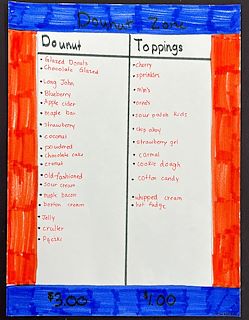 Dounut Zone
Dounut
Glazed Donuts
Chocholate Glazed
Long John
Blueberry
Apple cider
maple bar
strawberry
coconut
powdered
chocolate cake
cronut
old-fashioned
sour cream
maple bacon
boston cream
Jelly
cruller
Pączki
$3.00
Toppings
cherry
sprinkles
m/m's
oreo's
sour patch kids
chip ahoy
strawberry gel
carmal
cookie dough
cotton candy
whipped cream
hot fudge
$1.00